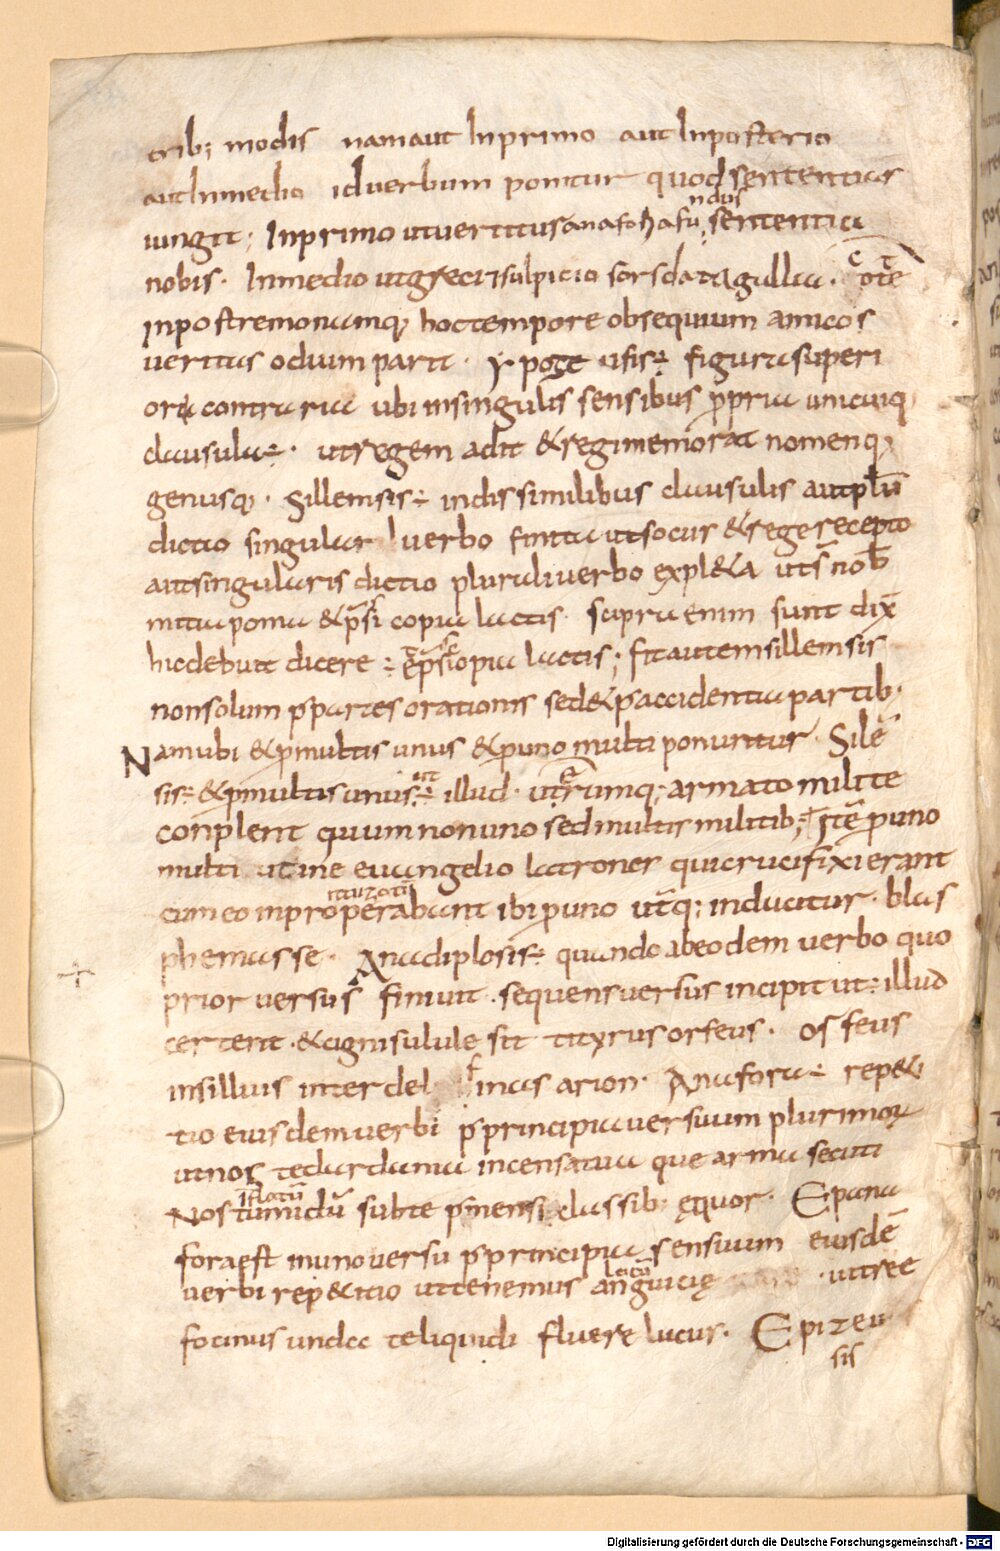 trib; modis namaut Inprimo aut Inposterio
autInmedio idverbum ponitur quod sententias
iungit; Inprimo utvertitusanafohafū, sententia
ndus
nobis. Inmedio utgreci sulpicio sorsdata gallia. c ot̄e
Inpostremonamq; hoctempore obsequium amicos
veritas odium parit. Ypoze usis÷ figura superi
ori contraria ubi insingulis sensibus ꝓpria unicuiq;
clausula÷. utregem adit &regimemorat nomenq;
genusq;. Sillemsis÷ indissimilibus clausulis autplū
dictio singular verbo finita utsocus &rege recepto
autsingularis dictio pluraliverbo expl&a utŝ nob̄
mitiapoma &p̄si copia lactis. supra enim sunt dix̄
hicdebuit dicere ÷ &p̄si copia lactis; fitautemsillemsis
nonsolum ꝑpartes orationis sed&ꝑaccidentia partib;
Namubi &ꝓmultis unus &ꝓuno multi ponuntur. Silē
sis÷ &ꝓmultis unus÷ illud. utrumq; armato milite
conplent quum nonuno sedmultis militib; Itē ꝓuno
multi utine euangelio latrones quicrucifixi erant
cumeo inproperabant ibi ꝓuno ut̄q; inducitur. blas
phemasse. Anadiplosis÷ quando abeodem verbo quo
prior versus finiuit. sequensversus incipit ut÷ illud
certent. &cigni sulule sit tityrus orfeus. Osfeus
insilluis inter del finas arion. Anafora÷ rep&i
tio eiusdemverbi ꝑprincipia versuum plurimoꝝ
utnos tedardania incensatua que arma secuti
Nos tumidū subte ꝑmensi classib; ęquor. Epana
īflatū
foraest inunoversu ꝑprincipia sensuum eiusdē
verbi rep&itio uttenemus anguicię . uitree
focinus undaa teliquidi fluere lacus. Epizeu
sis